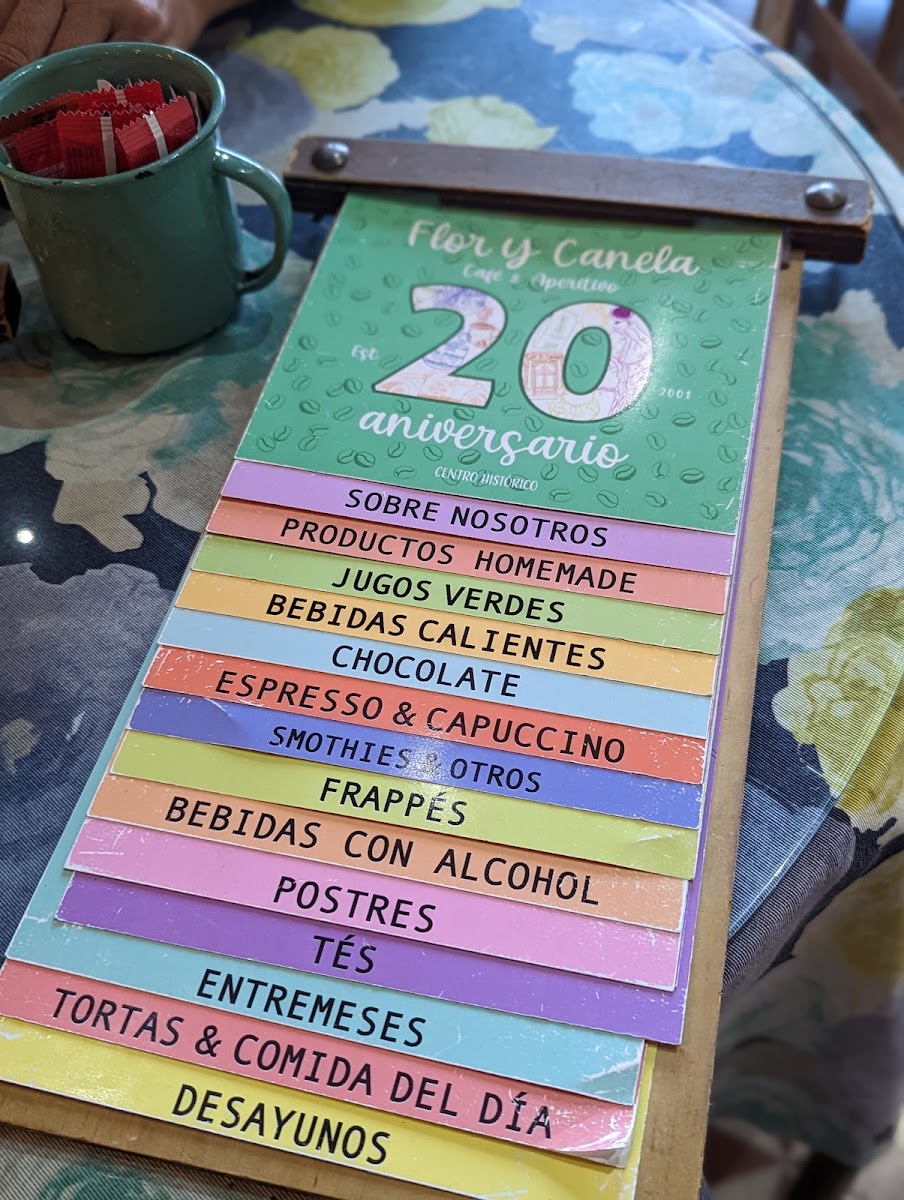 Flor y Canela
Café & Aperitivo
Est. 20 2001
aniversario
CENTRO HISTÓRICO
SOBRE NOSOTROS
PRODUCTOS HOMEMADE
JUGOS VERDES
BEBIDAS CALIENTES
CHOCOLATE
ESPRESSO & CAPUCCINO
SMOTHIES & OTROS
FRAPPÉS
BEBIDAS CON ALCOHOL
POSTRES
TÉS
ENTREMESES
TORTAS & COMIDA DEL DÍA
DESAYUNOS